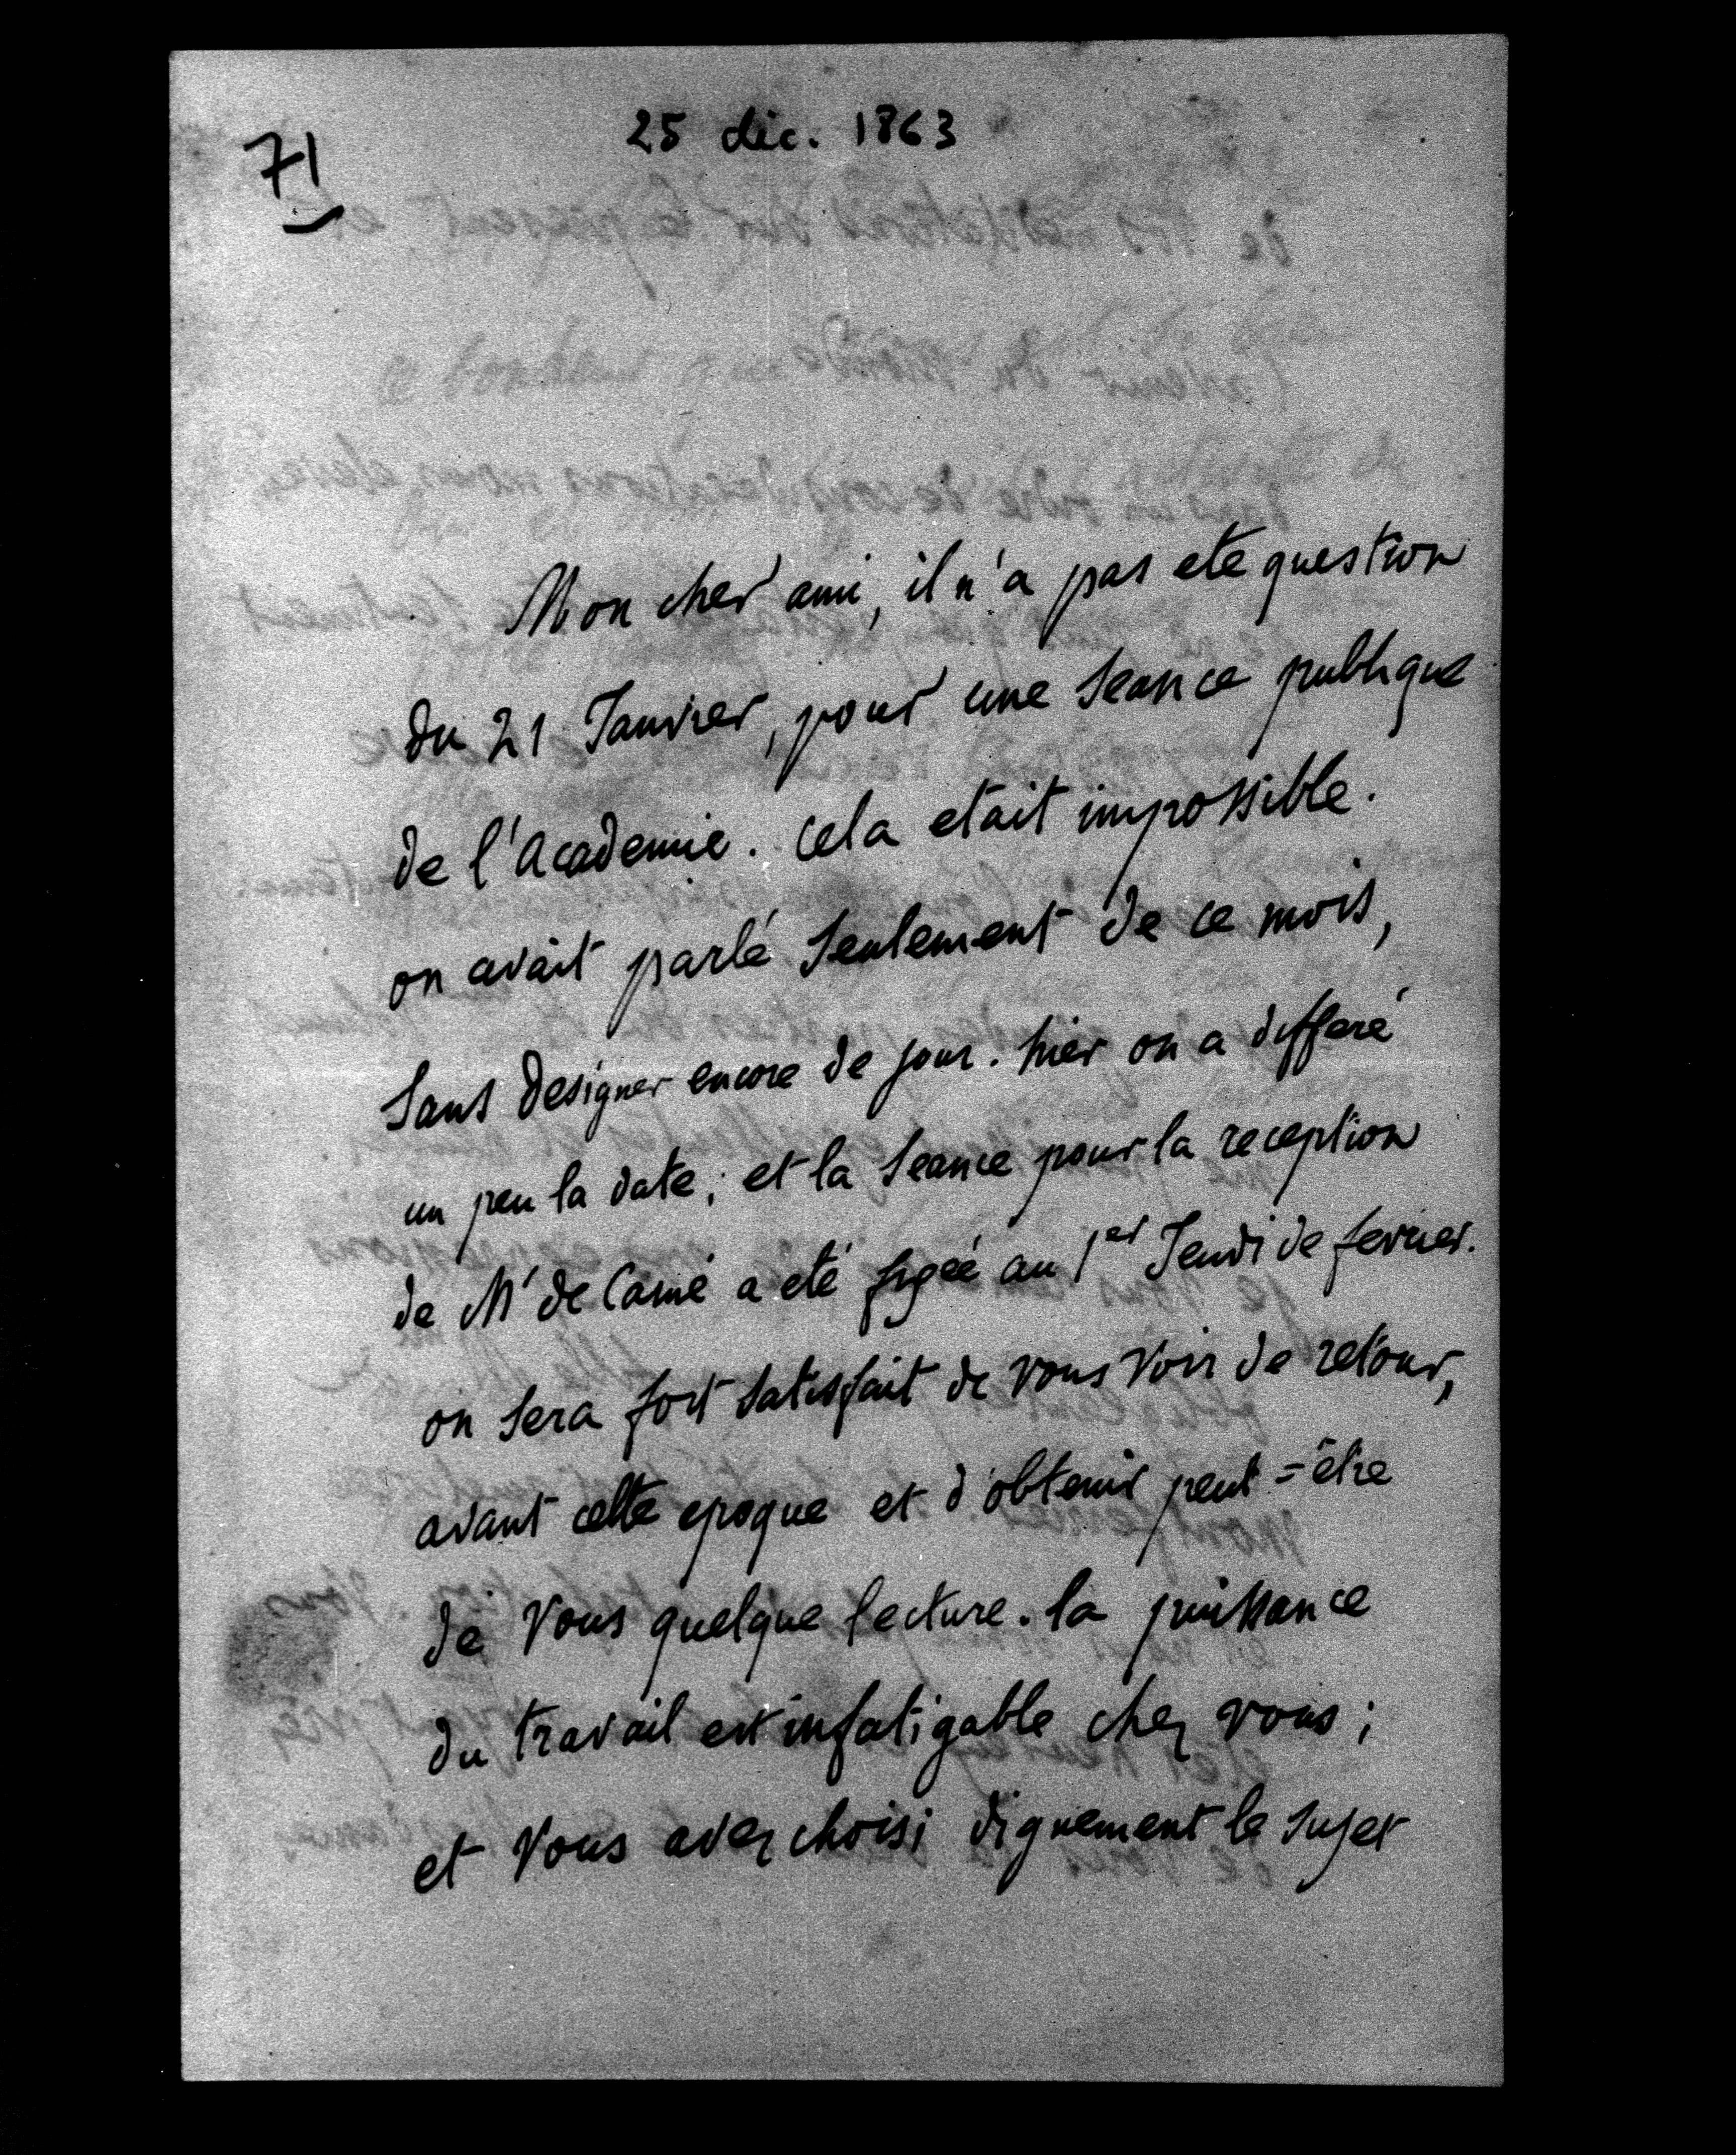 25 déc. 1863
71
Mon cher ami, il n'a pas ete question
du 21 Janvier, pour une Seance publique
de l'Academie. cela etait impossible.
on avait parlé Seulement de ce mois,
Sans designer encore de jour. hier on a differé
un peu la date; et la Seance pour la reception
de Mr de Carné a eté fixée au 1er Jeudi de fevrier.
on Sera fort Satisfait de vous voir de retour,
avant cette epoque et d'obtenir peut=être
de Vous quelque lecture. la puissance
du travail est infatigable chez vous;
et Vous avez choisi dignement le Sujet